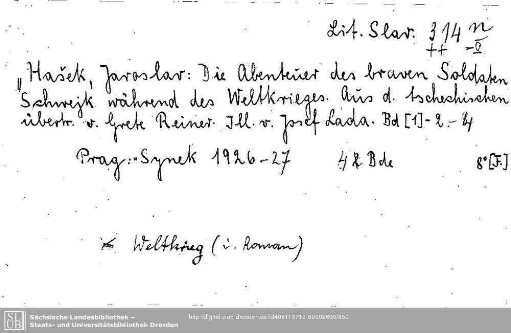 Lit. Slav. 314 n
++
Hašek, Jaroslav: Die Abenteuer des braven Soldaten
Schwejk während des Weltkrieges. Aus d. tschechischen
übertr. v. Grete Reiner. Ill. v. Josef Lada. Bd [1]-2.-4
Prag: Synek 1926-27 4 Bde 8° [F.]
Weltkrieg (i. Roman)
Sächsische Landesbibliothek –
Staats- und Universitätsbibliothek Dresden